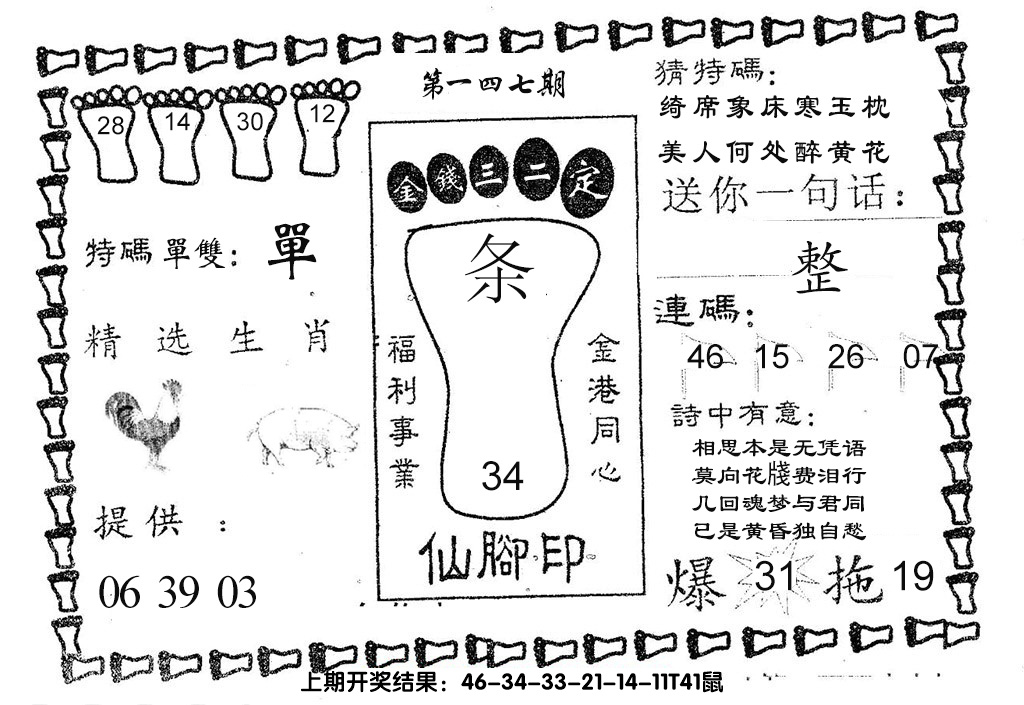 第一四七期
28 14 30 12
特碼單雙：單
精选生肖
提供：
06 39 03
金錢三二定
条
福利事業
金港同心
34
仙腳印
猜特碼：
绮席象床寒玉枕
美人何处醉黄花
送你一句话：
整
連碼：
46 15 26 07
詩中有意：
相思本是无凭语
莫向花牋费泪行
几回魂梦与君同
已是黄昏独自愁
爆 31 拖 19
上期开奖结果：46-34-33-21-14-11T41鼠